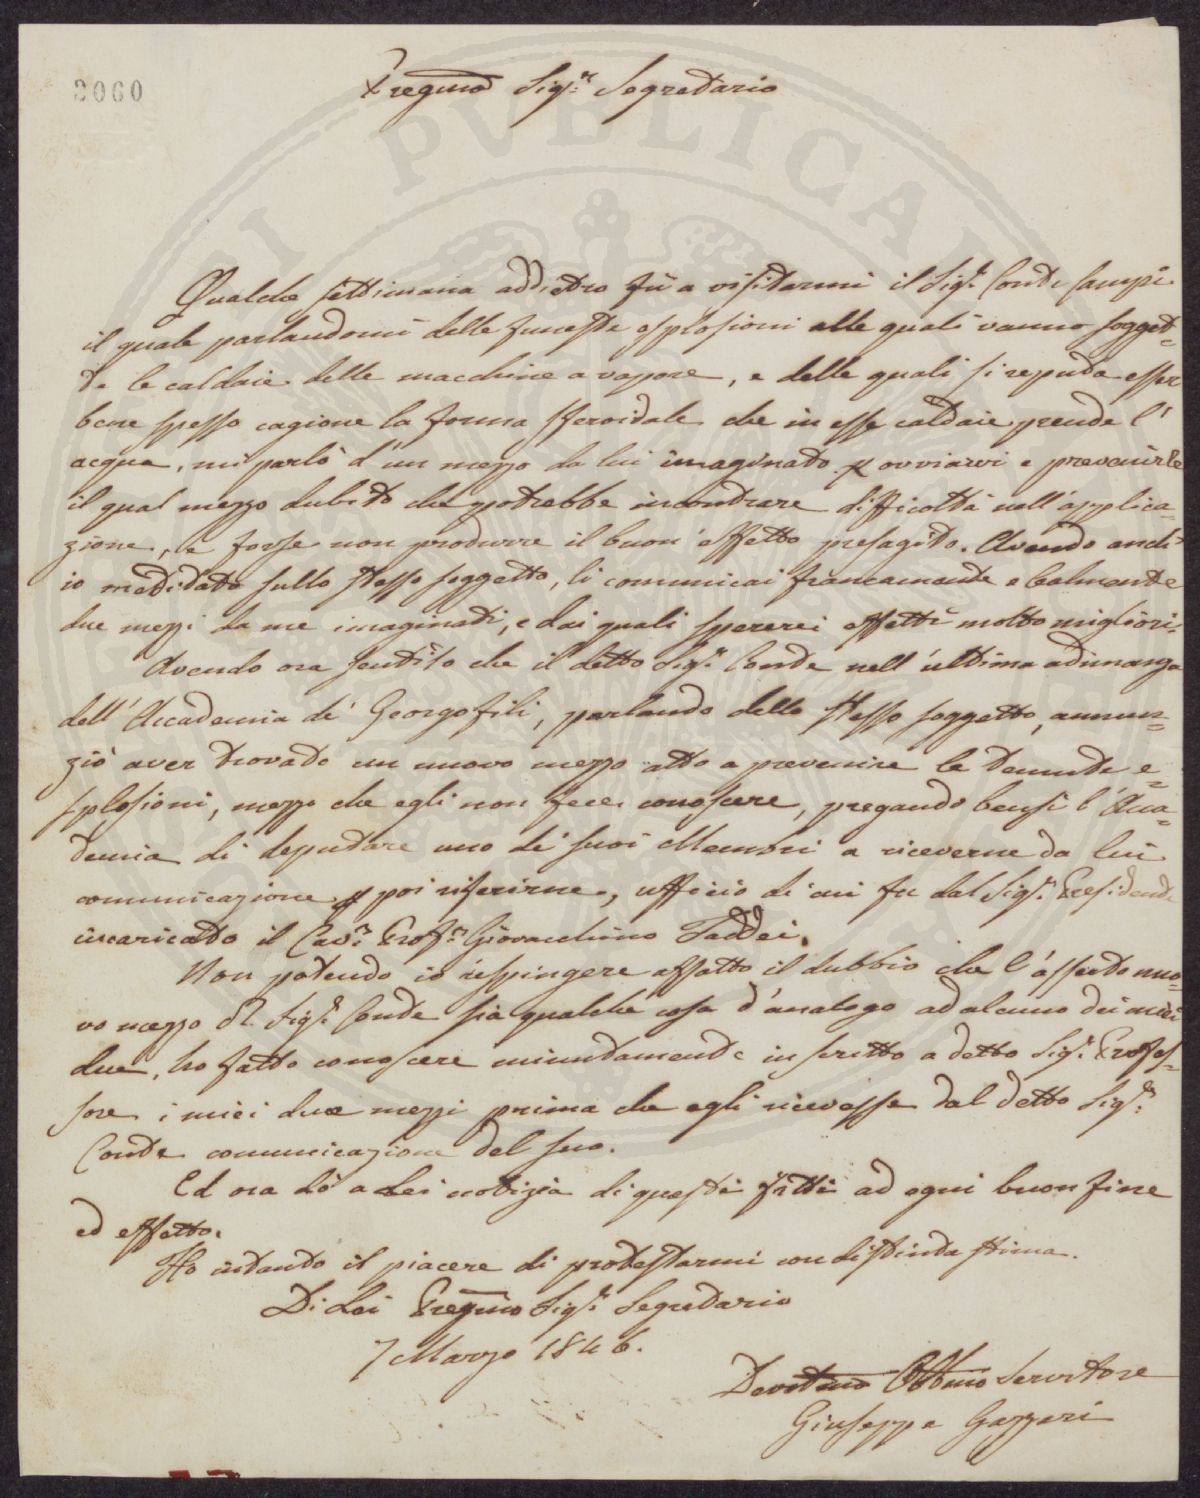 2060
Pregmo Sigr. Segretario
Qualche settimana addietro fù a visitarmi il Sigr. Conte
il quale parlandomi delle funeste esplosioni alle quali vanno sogget=
te le caldaie delle macchine a vapore, e delle quali si reputa esser
bene spesso cagione la forma sferoidale che in esse caldaie prende l'
acqua, mi parlò d'un mezzo da lui imaginato p ovviarvi e prevenirle
il qual mezzo dubito che potrebbe incontrare difficoltà nell'applica=
zione, e forse non produrre il buon effetto presagito. Avendo anch'
io meditato sullo stesso soggetto, li comunicai francamente e lealmente
due mezzi da me imaginati, e dai quali spererei effetti molto migliori.
Avendo ora sentito che il detto Sigr. Conte nell'ultima adunanza
dell'Accademia de' Georgofili, parlando dello stesso soggetto, annun=
ziò aver trovato un nuovo mezzo atto a prevenire le temute e=
splosioni, mezzo che egli non fece conoscere, pregando bensì l'Acca=
demia di deputare uno de' suoi Membri a riceverne da lui
comunicazione p poi riferirne, ufficio di cui fu dal Sigr. Presidente
incaricato il Cavr. Profr. Giovacchino Taddei.
Non potendo io respingere affatto il dubbio che l'asserto nuo=
vo mezzo del Sigr. Conte sia qualche cosa d'analogo ad alcuno dei miei
due, ho fatto conoscere minutamente in scritto a detto Sigr. Profes=
sore i miei due mezzi prima che egli ricevesse dal detto Sigr.
Conte comunicazione del suo.
Ed ora dò a Lei notizia di questi fatti ad ogni buon fine
ed effetto.
Ho intanto il piacere di protestarmi con distinta stima.
Di Lei Pregmo Sigr. Segretario
7 Marzo 1846.
Devotmo Obbmo Servitore
Giuseppe Gazzeri
PVBLICAI